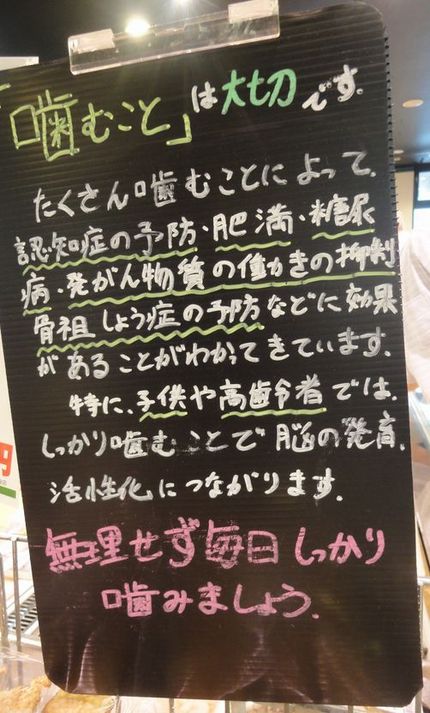 「噛むこと」は大切です.
たくさん噛むことによって.
認知症の予防・肥満・糖尿
病・発がん物質の働かきの抑制
骨祖しょう症の予防などに効果
があることがわかてきています.
特に、子供や高齢者では.
しっかり噛むことで脳の発育.
活性化につながります.
無理せず毎日しっかり
噛みましょう.
円